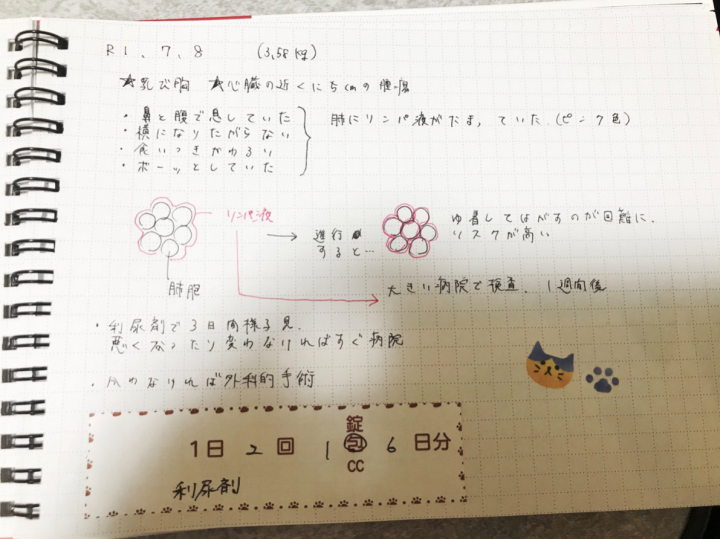 R1.7.8 (3.58kg)
★乳び胸 ★心臓の近くに5cmの腫瘍
・鼻と腹で息していた
・横になりたがらない
・食いつきがわるい
・ボーッとしていた
肺にリンパ液がたまっていた.(ピンク色)
リンパ液
→ 進行すると…
ゆ着してはがすのが困難に.
リスクが高い
肺胞
大きい病院で検査. 1週間後
・利尿剤で3日間様子見.
悪くなったり変わなければすぐ病院
・かわなければ外科的手術
1日 2 回 1 錠 包 cc 6 日分
利尿剤